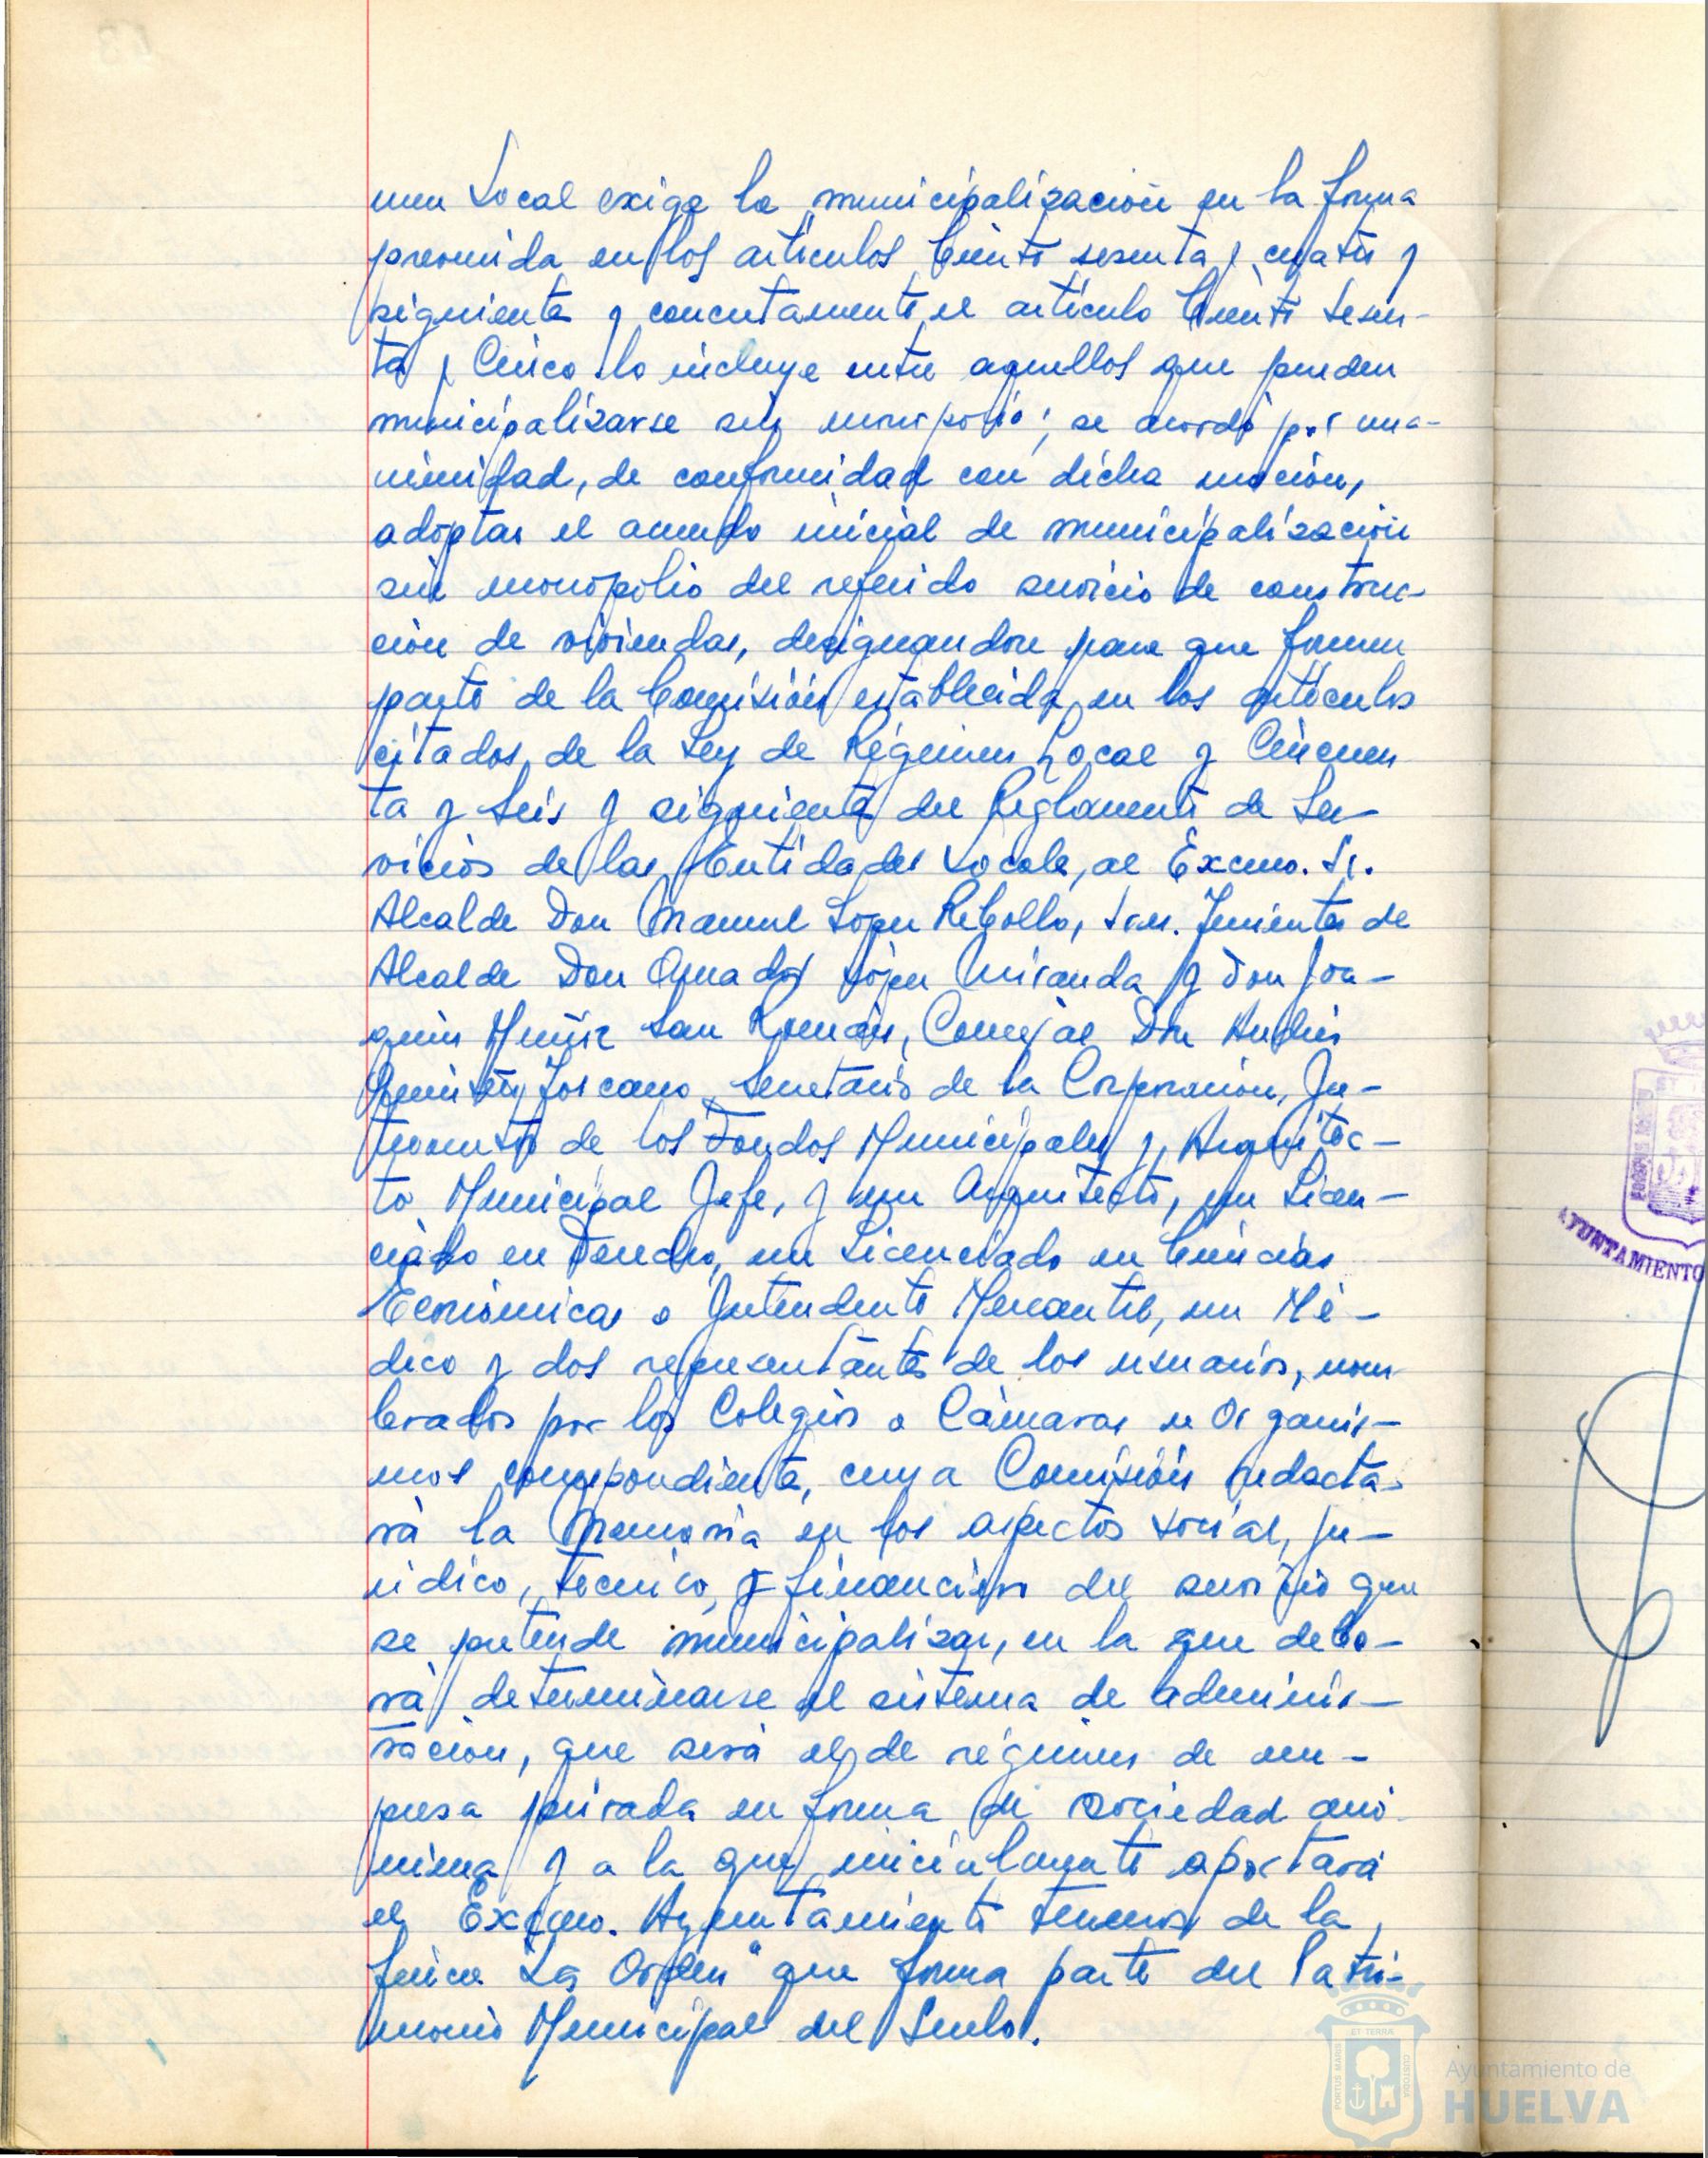 men Local exige la municipalización en la forma
prevenida en los artículos Ciento sesenta y cuatro y
siguientes y concretamente el artículo Ciento sesen-
ta y Cinco lo incluye entre aquellos que pueden
municipalizarse sin monopolio; se acordó por una-
nimidad, de conformidad con dicha moción,
adoptar el acuerdo inicial de municipalización
sin monopolio del referido servicio de construc-
ción de viviendas, designandose para que formen
parte de la Comisión establecida en los artículos
citados de la Ley de Régimen Local y Cincuen
ta y Seis y siguientes del Reglamento de Ser-
vicios de las Entidades Locales, al Excmo. Sr.
Alcalde Don Manuel López Rebollo, Sres. Tenientes de
Alcalde Don Amador López Miranda y Don Joa-
quín Muñiz San Román, Concejal Don Andrés
Toscano, Secretario de la Corporación, In-
terventor de los Fondos Municipales y, Arquitec-
to Municipal Jefe, y un Arquitecto, un Licen-
ciado en Derecho, un Licenciado en Ciencias
Económicas o Intendente Mercantil, un Mé-
dico y dos representantes de los usuarios, nom
brados por los Colegios o Cámaras u Organis-
mos correspondientes, cuya Comisión redacta-
rá la Memoria en los aspectos social, ju-
rídico, técnico, y financiero del servicio que
se pretende municipalizar, en la que debe-
rá determinarse el sistema de adminis-
ración, que será el de régimen de em-
presa privada en forma de sociedad anó
nima y a la que inicialmente aportará
el Excmo. Ayuntamiento terrenos de la
finca "La Orden" que forma parte del Patri-
monio Municipal del Suelo.
AYUNTAMIENTO
Ayuntamiento de
HUELVA